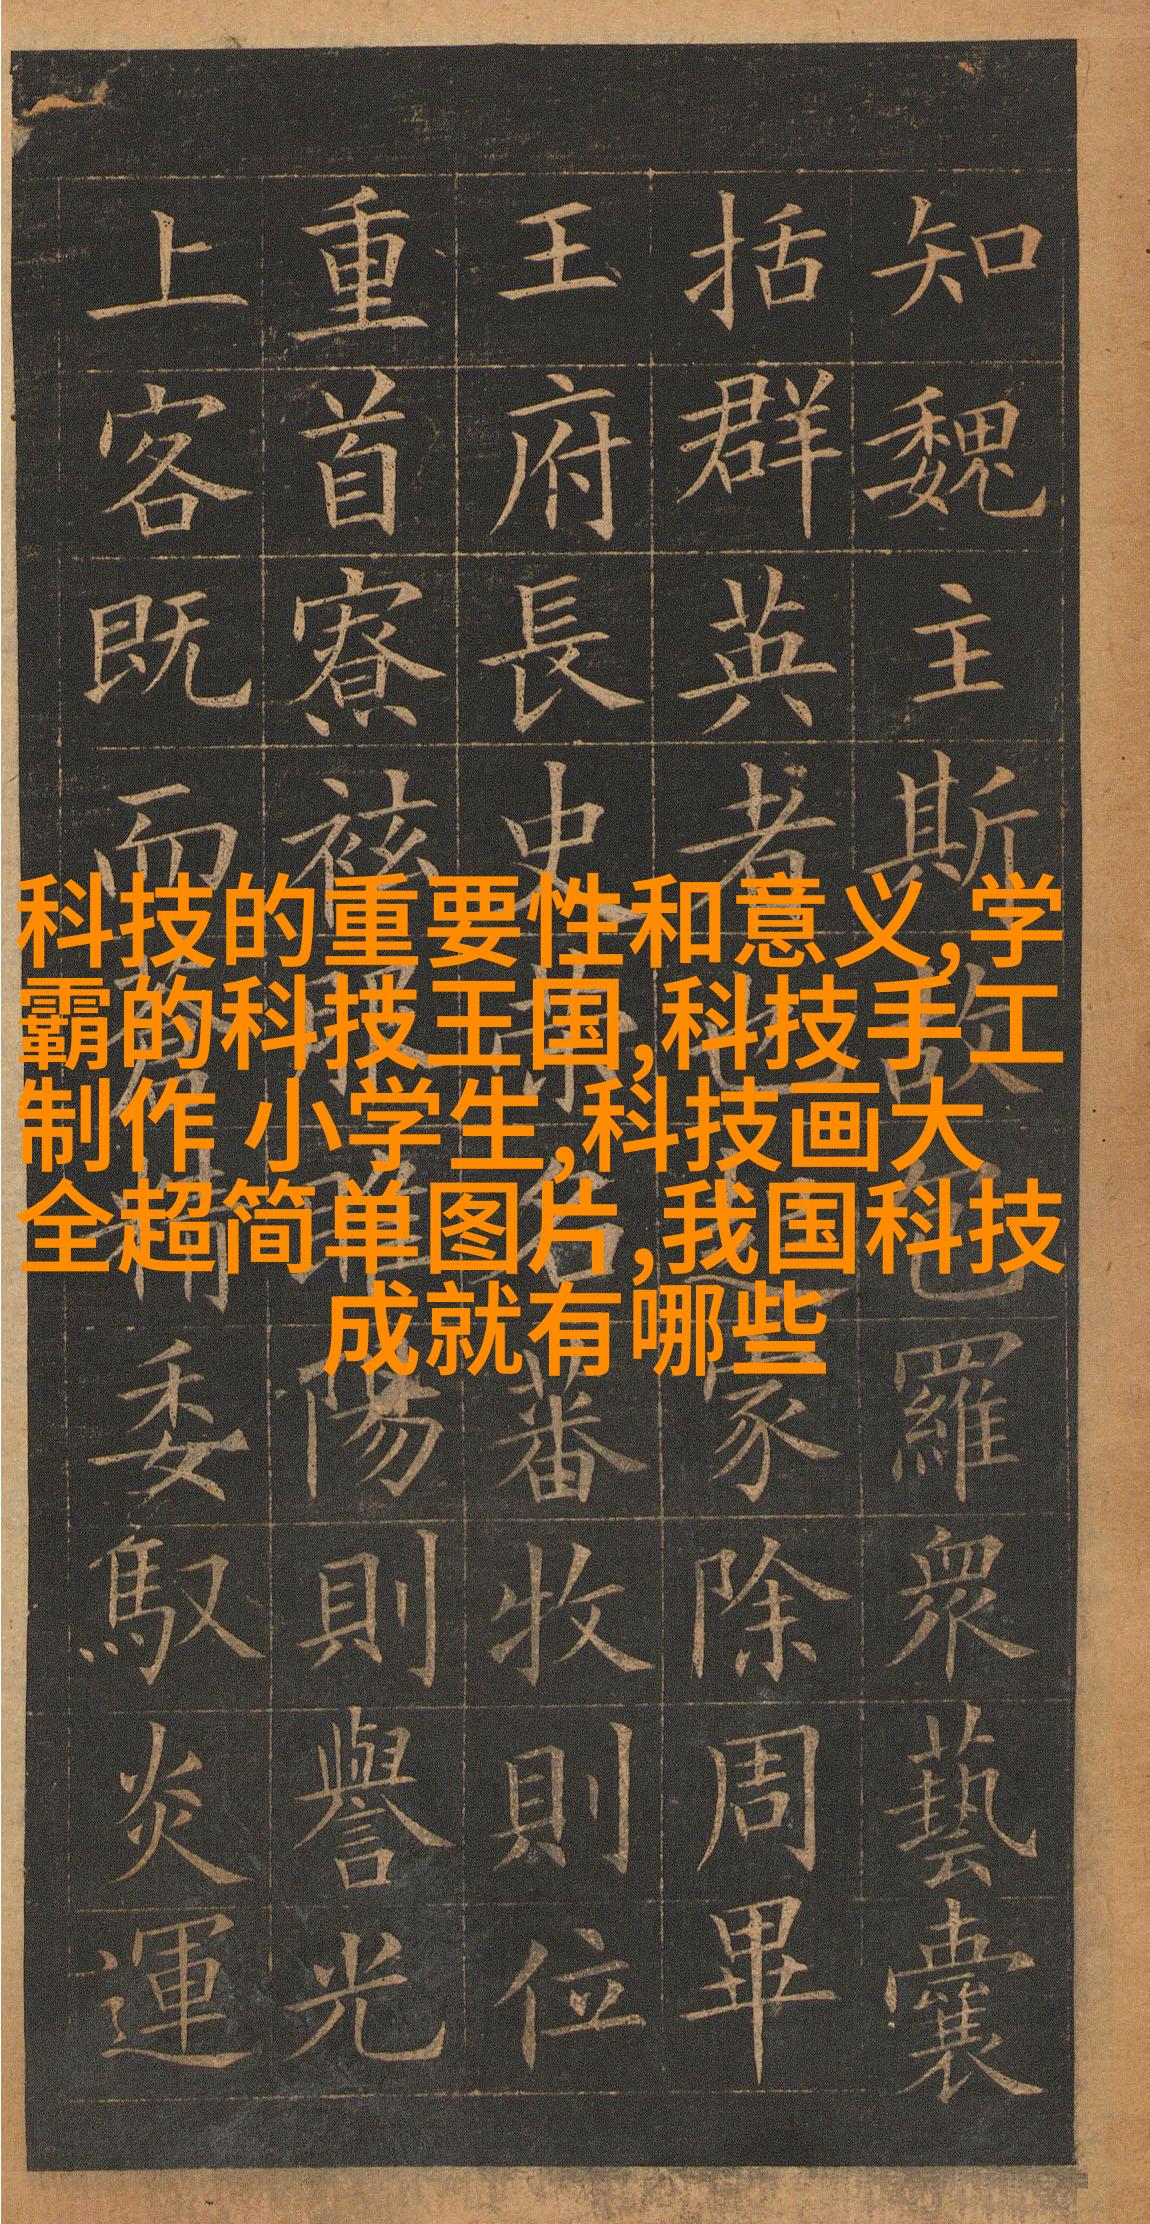 知魏主斯故包羅眾藝囊
括群英者也家除周畢
王府長史名蕃牧則位
重首寮袨服睢陽則譽光
上客既而蒼精委馭炎運
科技的重要性和意义,学
霸的科技王国,科技手工
制作 小学生,科技画大
全超简单图片,我国科技
成就有哪些